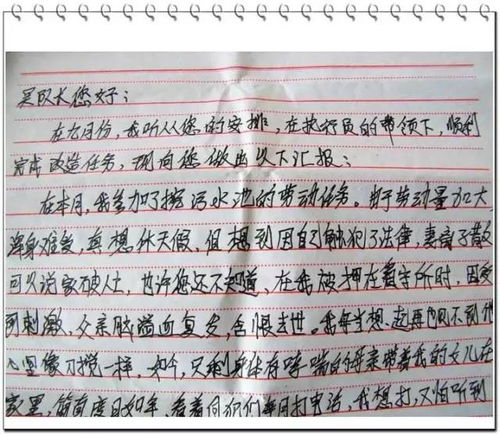 吴队长您好：
在九月份，我听从您的安排，在执行员的带领下，顺利
完成改造任务，现向您做出以下汇报：
在本月，我参加了挖污水池的劳动任务。由于劳动量加大
浑身难受，真想休天假，但想到因自己触犯了法律，妻离子散
可以说家破人亡，也许您还不知道，在我被押在看守所时，因受
到刺激，父亲肺喘而复发，含恨去世。我每当想起再也见不到他
心里像刀搅一样，如今，只剩身体有哮喘的母亲带着我的女儿在
家里，简直度日如年，看着同犯们每月打电话，我想打，又怕听到